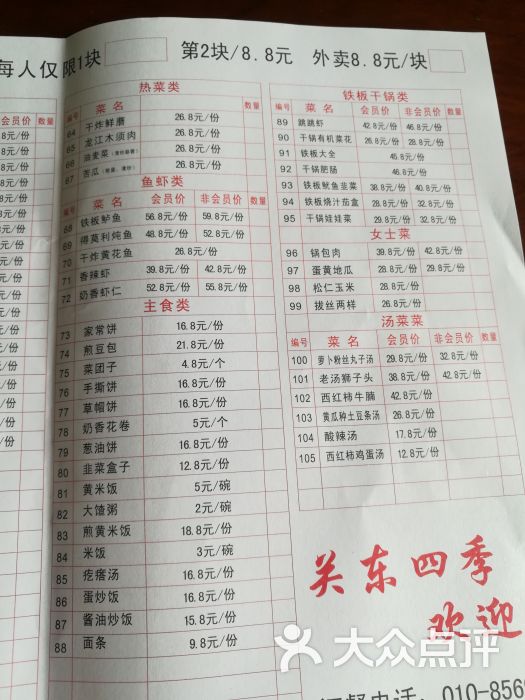 每人仅限1块 第2块/8.8元 外卖8.8元/块
热菜类
编号 菜名 数量
64 干炸鲜蘑 26.8元/份
65 龙江木须肉 26.8元/份
66 油麦菜 26.8元/份
67 苦瓜 26.8元/份
鱼虾类
编号 菜名 会员价 非会员价 数量
68 铁板鲈鱼 56.8元/份 59.8元/份
69 得莫利炖鱼 48.8元/份 52.8元/份
70 干炸黄花鱼 26.8元/份
71 香辣虾 39.8元/份 42.8元/份
72 奶香虾仁 52.8元/份 55.8元/份
主食类
73 家常饼 16.8元/份
74 煎豆包 21.8元/份
75 菜团子 4.8元/个
76 手撕饼 16.8元/份
77 草帽饼 16.8元/份
78 奶香花卷 5元/个
79 葱油饼 16.8元/份
80 韭菜盒子 12.8元/份
81 黄米饭 5元/碗
82 大馇粥 2元/碗
83 煎黄米饭 18.8元/份
84 米饭 3元/碗
85 疙瘩汤 16.8元/份
86 蛋炒饭 16.8元/份
87 酱油炒饭 15.8元/份
88 面条 9.8元/份
铁板干锅类
编号 菜名 会员价 非会员价 数量
89 跳跳虾 42.8元/份 46.8元/份
90 干锅有机菜花 28.8元/份 32.8元/份
91 铁板大全 45.8元/份
92 干锅肥肠 46.8元/份
93 铁板鱿鱼韭菜 38.8元/份 40.8元/份
94 铁板烧汁茄盒 28.8元/份 32.8元/份
95 干锅娃娃菜 29.8元/份 32.8元/份
女士菜
96 锅包肉 39.8元/份 42.8元/份
97 蛋黄地瓜 28.8元/份 29.8元/份
98 松仁玉米 28.8元/份
99 拔丝两样 26.8元/份
汤菜菜
编号 菜名 会员价 非会员价 数量
100 萝卜粉丝丸子汤 29.8元/份 32.8元/份
101 老汤狮子头 38.8元/份 42.8元/份
102 西红柿牛腩 42.8元/份
103 黄瓜种土豆条汤 26.8元/份
104 酸辣汤 17.8元/份
105 西红柿鸡蛋汤 12.8元/份
关东四季
欢迎
订餐电话：010-856
大众点评